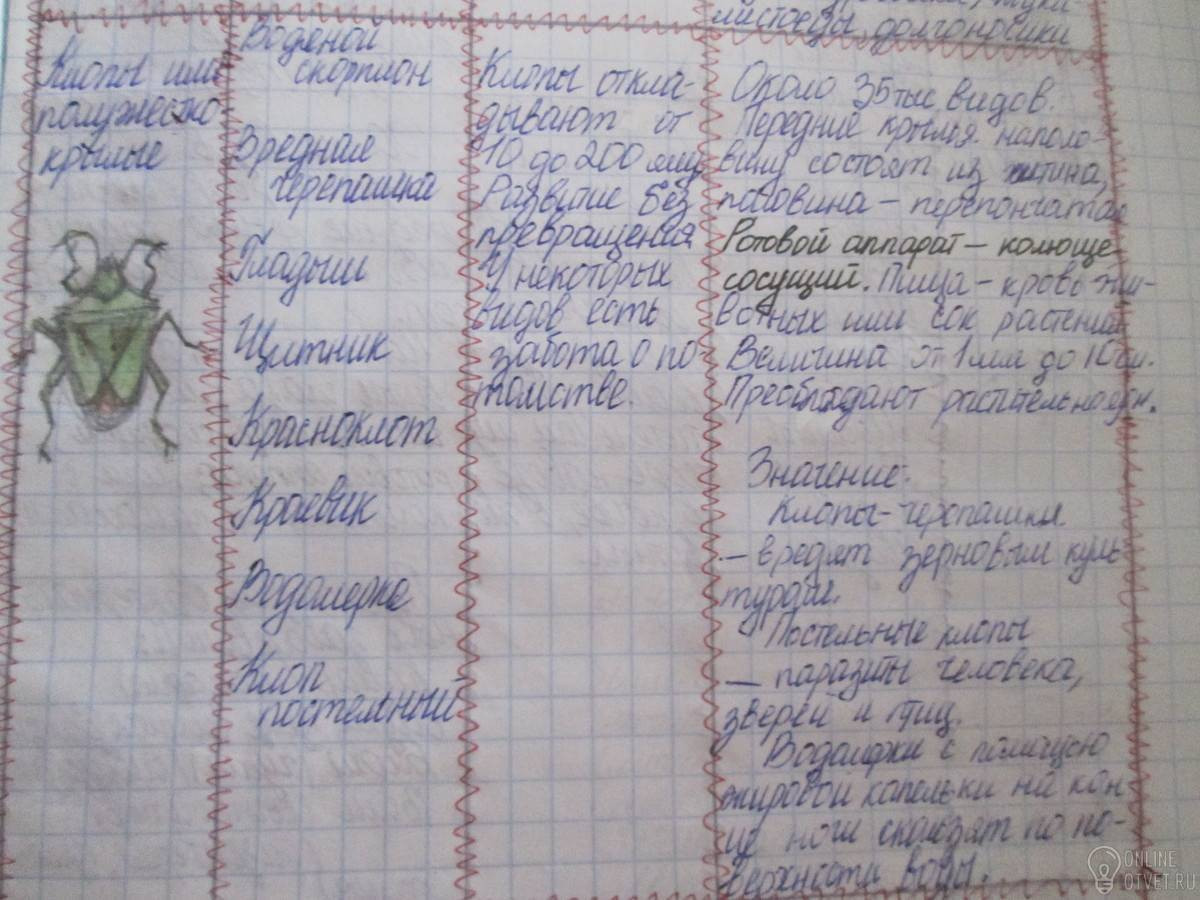 листоеды, долгоносики
Клопы или
полужестко-
крылые
Водяной
скорпион
Вредная
черепашка
Гладыш
Щитник
Красноклоп
Краевик
Водомерка
Клоп
постельный
Клопы откла-
дывают от
10 до 200 яиц
Развитие без
превращения
У некоторых
видов есть
забота о по-
томстве.
Около 35 тыс видов.
Передние крылья наполо-
вину состоят из хитина,
половина - перепончатая
Ротовой аппарат - колюще
сосущий. Пища - кровь жи-
вотных или сок растений
Величина от 1 мм до 10 см.
Преобладают
Значение:
Клопы-черепашки
- вредят зерновым куль
турам.
Постельные клопы
- паразиты человека,
зверей и птиц.
Водомерки с помощью
жировой капельки на кон-
це ноги скользят по по-
верхности воды.
ONLINE
OTVET.RU